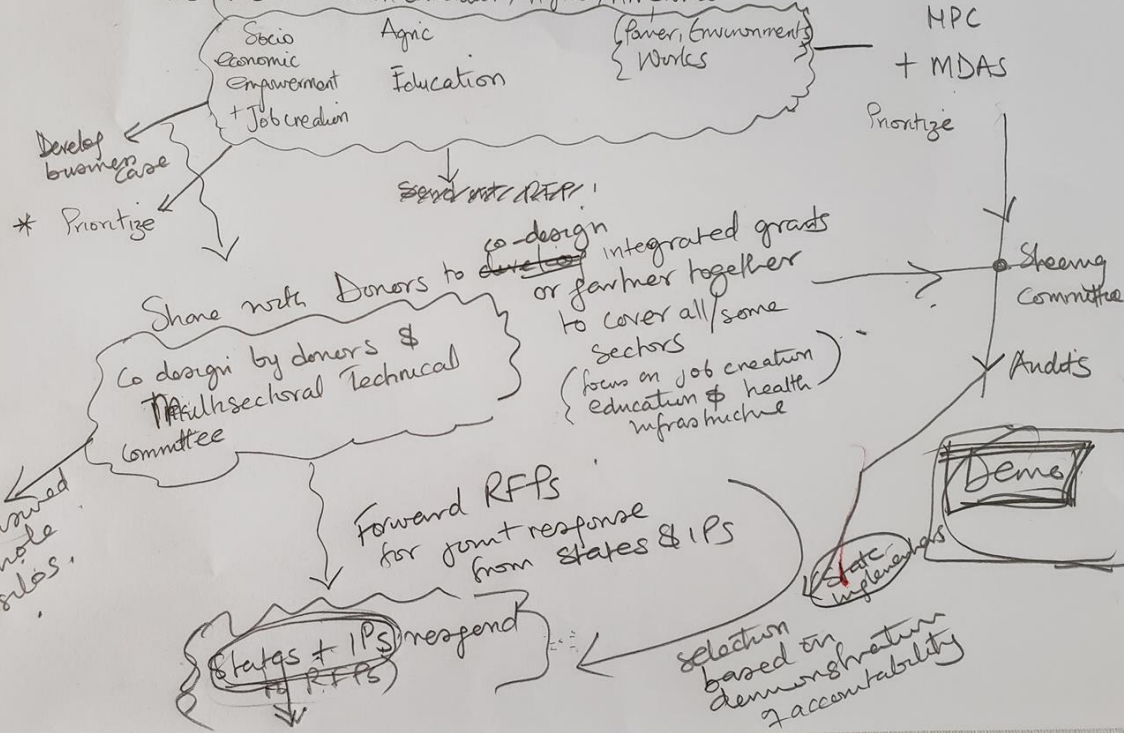 Socio
economic
empowerment
+ Job creation
Agric
Education
(Power, Environments
Works
MPC
+ MDAS
Prioritize
Develop
business
case
* Prioritize
Send out RFP!
Share with Donors to develop co-design integrated grants
or partner together
to cover all/some
sectors
(focus on job creation
education & health
infrastructure)
Steering
Committee
Audits
Co design by donors &
Multisectoral Technical
Committee
Demo
Forward RFPs
for joint response
from states & IPs
State
implementers
States + IPs respond
to RFPs)
selection
based on
demonstration
of accountability